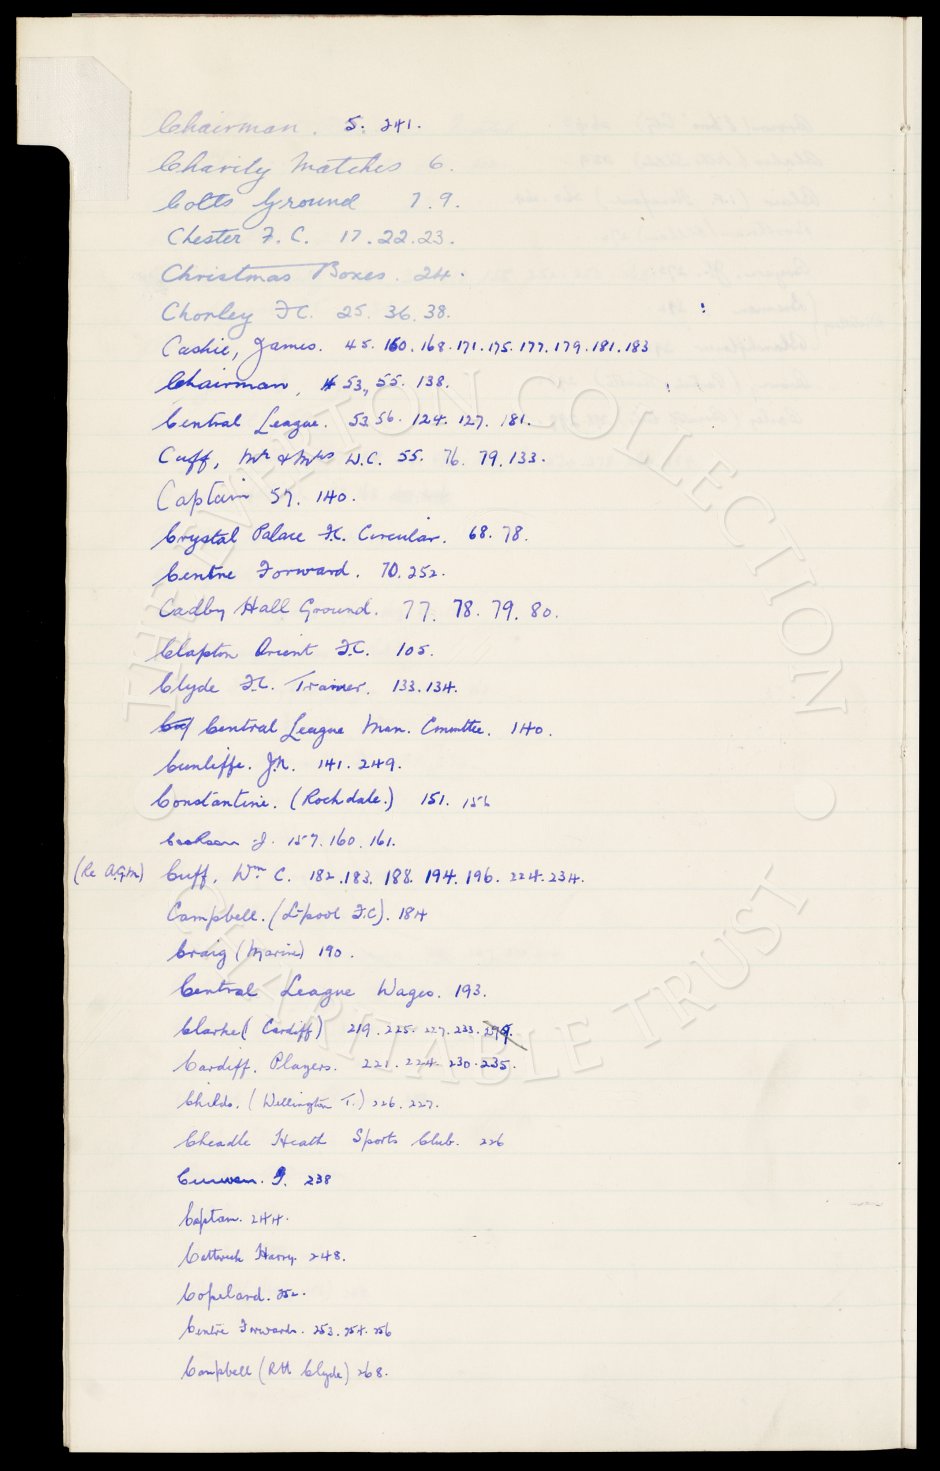 Chairman. 5. 241.
Charity Matches 6.
Colts Ground 7. 9.
Chester F. C. 17. 22. 23.
Christmas Boxes. 24.
Chorley F.C. 25. 36. 38.
Caskie, James. 45. 160. 168. 171. 175. 177. 179. 181. 183
Chairman, 53, 55. 138.
Central League. 53 56. 124. 127. 181.
Cuff, Mr & Mrs W.C. 55. 76. 79. 133.
Captain 57. 140.
Crystal Palace F.C. Circular. 68. 78.
Centre Forward. 70. 252.
Cadby Hall Ground. 77. 78. 79. 80.
Clapton Orient F.C. 105.
Clyde F.C. Trainer. 133. 134.
Central League Man. Committee. 140.
Cunliffe. J.N. 141. 249.
Constantine. (Rochdale.) 151. 156
J. 157. 160. 161.
(Re A.G.M.) Cuff. Wm C. 182. 183. 188. 194. 196. 224. 234.
Campbell. (L'pool F.C). 184
Craig (Marine) 190.
Central League Wages. 193.
Clarke (Cardiff) 219. 225. 227. 233.
Cardiff. Players. 221. 224. 230. 235.
Childs. (Wellington T.) 226. 227.
Cheadle Heath Sports Club. 226
Curwen. 238
Captain. 244.
Catterick Harry. 248.
Copeland. 252.
Centre Forwards. 253. 254. 256
Campbell (Clyde) 268.
THE EVERTON COLLECTION
CHARITABLE TRUST